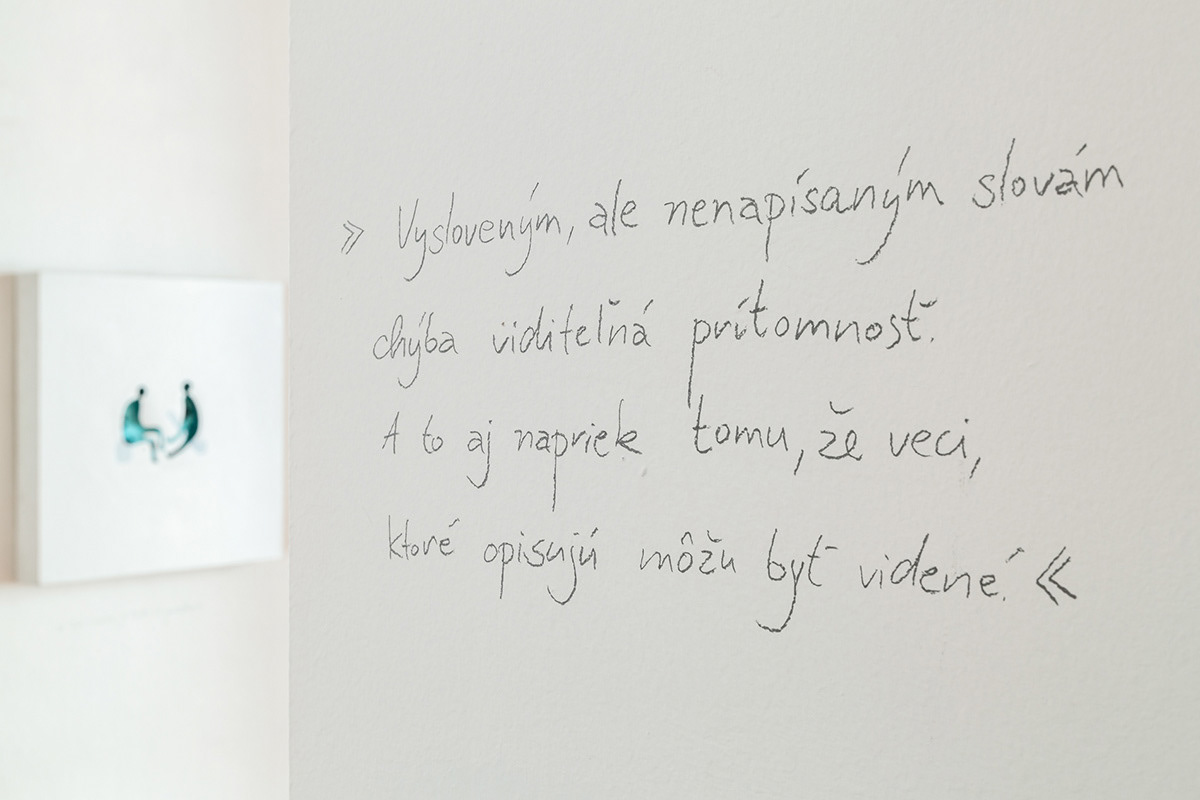 » Vysloveným, ale nenapísaným slovám
chýba viditeľná prítomnosť.
A to aj napriek tomu, že veci,
ktoré opisujú môžu byť videné. «